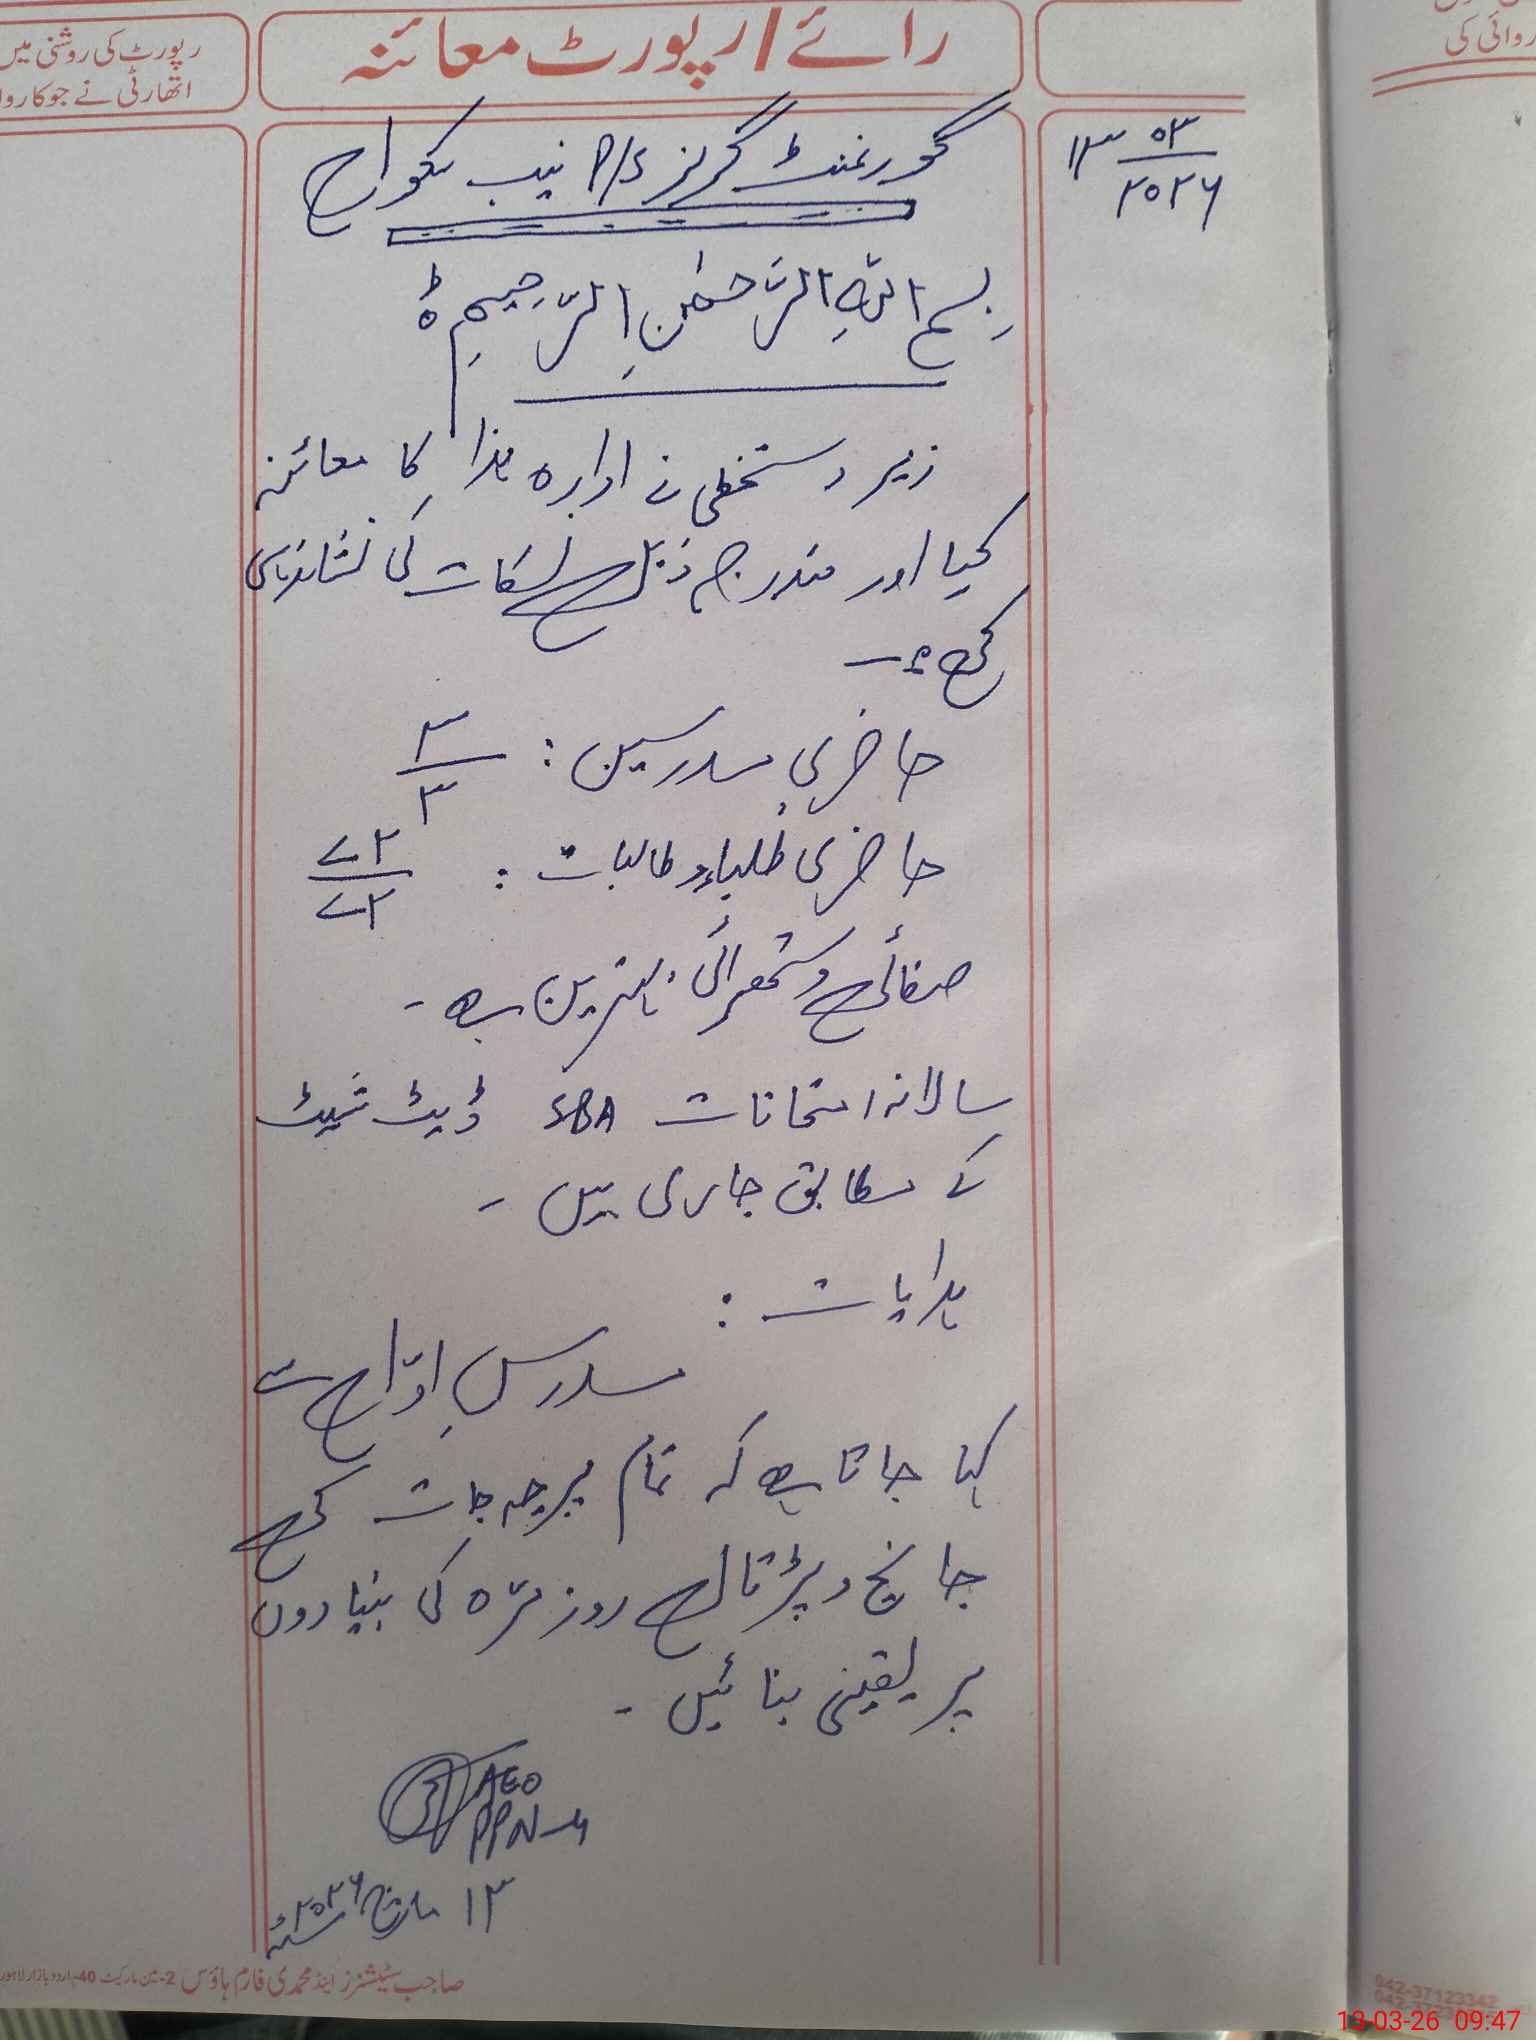 رائے/رپورٹ معائنہ
رپورٹ کی روشنی میں
اتھارٹی نے جو کاروا
روائی کی
۱۳ ۰۳
۲۰۲۶
گورنمنٹ گرلز P/S نیب
بسم اللہ الرحمٰنِ الرّحیمِ ۃ
زیر دستخطی نے ادارہ ہذا کا معائنہ
کیا اور مندرجہ ذیل نکات کی نشاندہی
کی۔
حاضری مدرسین : ۳/۳
حاضری طلباء و طالبات : ۷۲/۷۲
صفائی و ستھرائی بہترین ہے۔
سالانہ امتحانات SBA ڈیٹ شیٹ
کے مطابق جاری ہیں۔
ہدایات :
مدرسِ اوّل سے
کہا جاتا ہے کہ تمام پرچہ جات کی
جانچ و پڑتال روز مرّہ کی بنیادوں
پر یقینی بنائیں۔
AEO
PPN-
۱۳ مارچ ۲۰۲۶
صاحب سٹیشنرز اینڈ محمدی فارم ہاؤس 2-مین مارکیٹ 40-اردو بازار لاہور
042-37123342
13-03-26 09:47